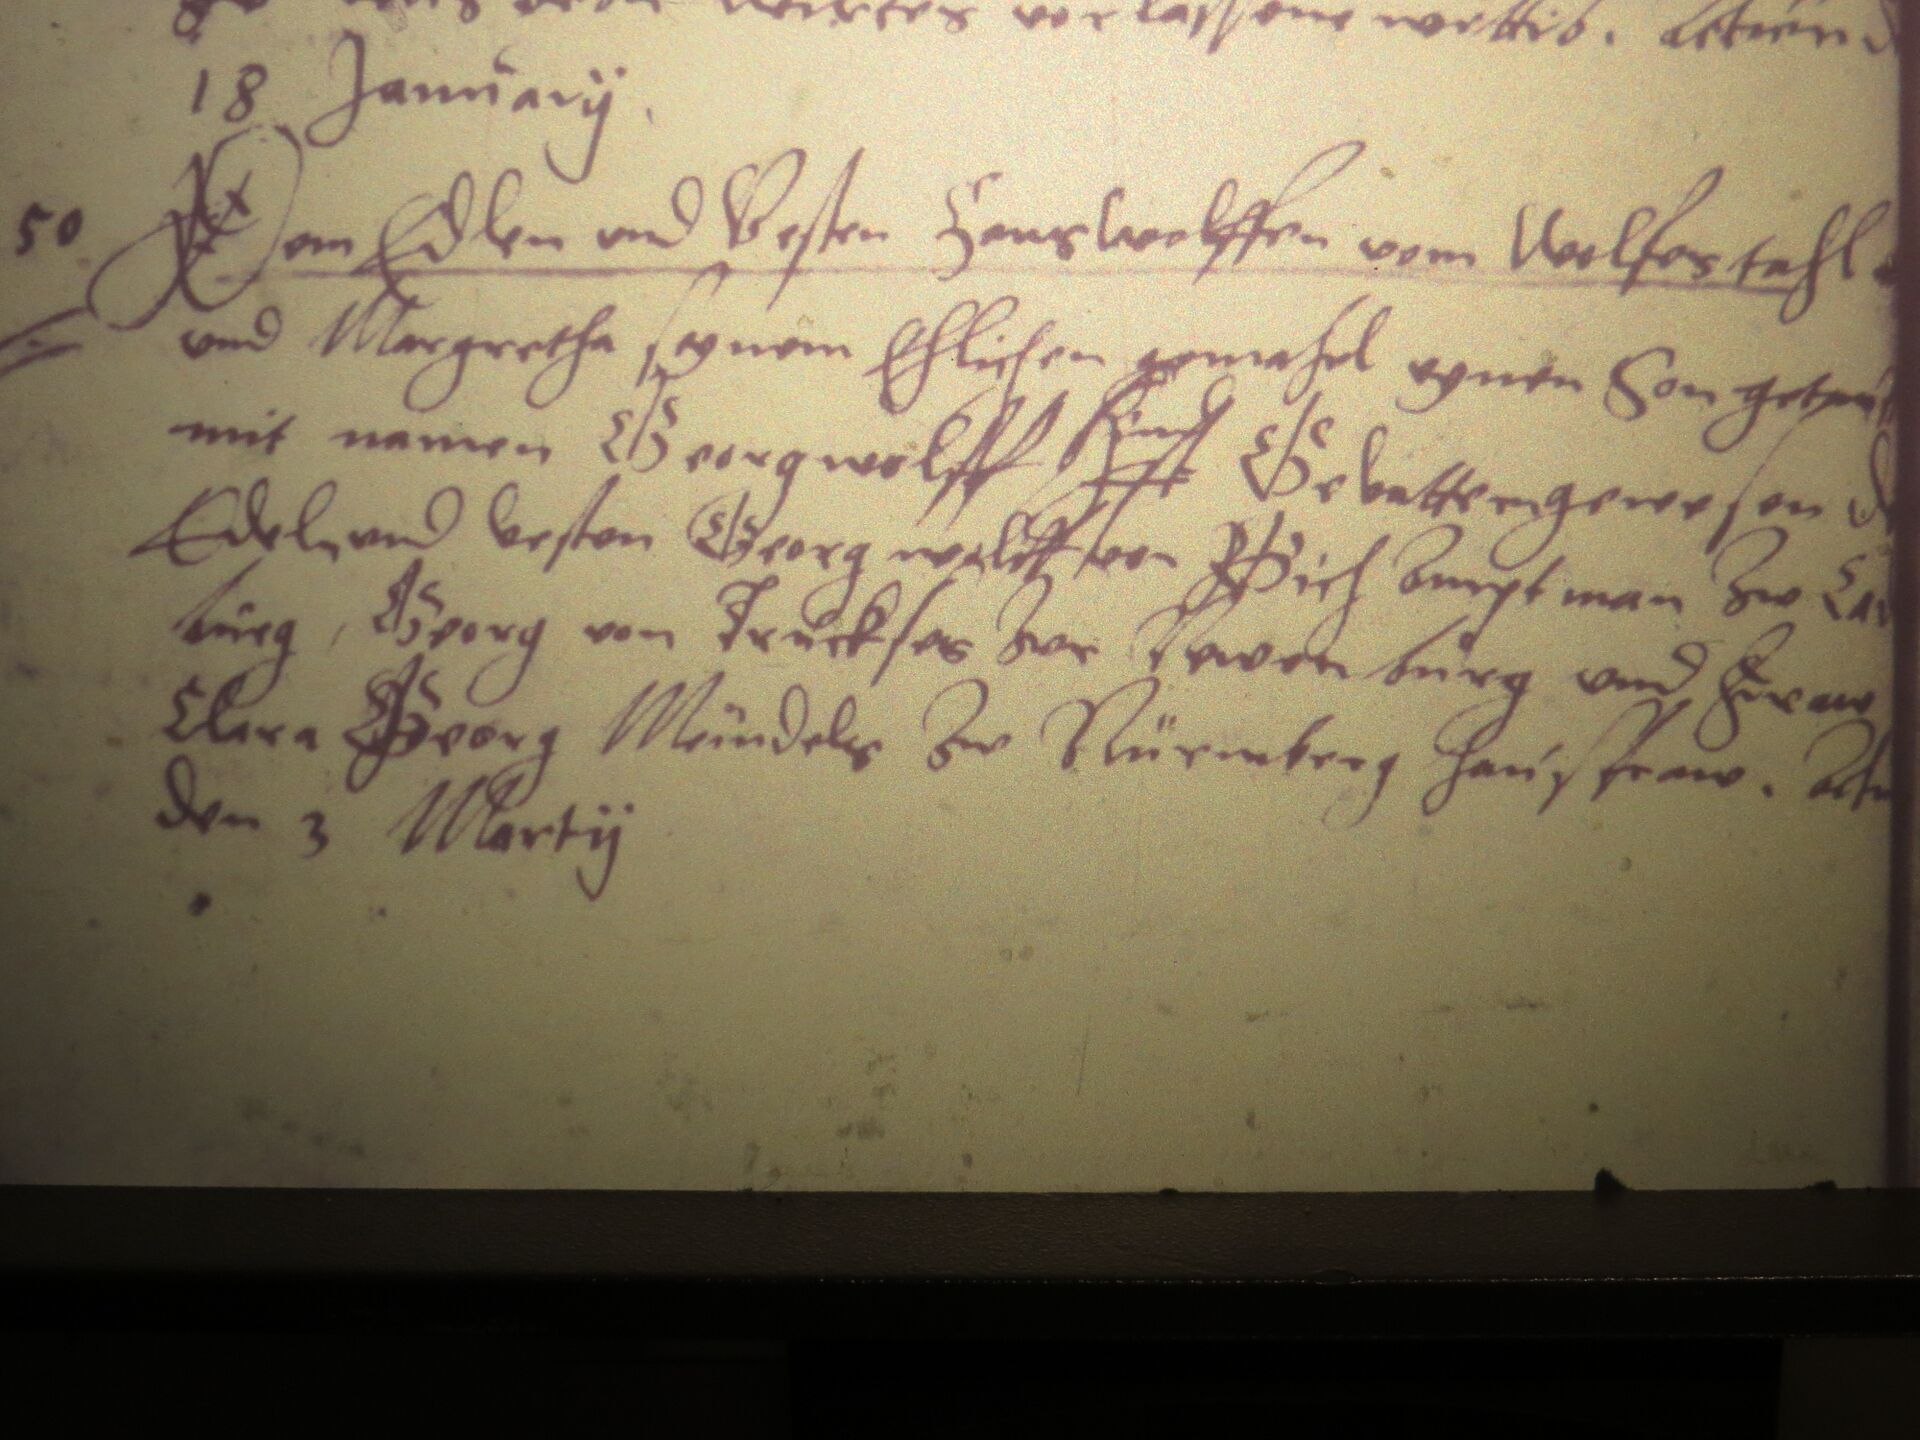 verlassene wittib. Actum
18 January.
50 Dem Edlen vnd Vesten Hanswolffen vom Wolfestahl
vnd Margretha seynem Ehlichen gemahel eynen Son getau
mit namen Georgwolff sind Gevattern gewesen de
Edeln vnd vesten Georg wolff von Amptman zw
burg, Georg von Truckses zwr Newenburg vnd Fraw
Clara Georg Meindels zw Nürmberg hausfraw. Act
den 3 Martij